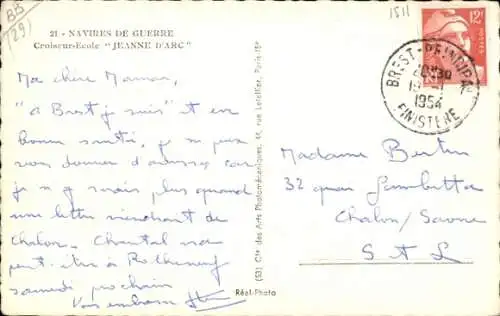 BB
(29)
21 - NAVIRES DE GUERRE
Croiseur-Ecole "JEANNE D'ARC"
Ma chère Maman,
"à Brest je suis" et en
bonne santé, je ne puis
vous donner d'adresse car
je n'y serais plus quand
une lettre viendrait de
Chalon. Chantal va
peut-être à Rothéneuf
samedi prochain
Vous embrasse
(53) Cie des Arts Photomécaniques, 44, rue Letellier, Paris-15e
Réel-Photo
1511
12F
POSTES
BREST-PRINCIPAL
1954
FINISTERE
Madame Bertin
32 quai Gambetta
Chalon/Saone
S et L